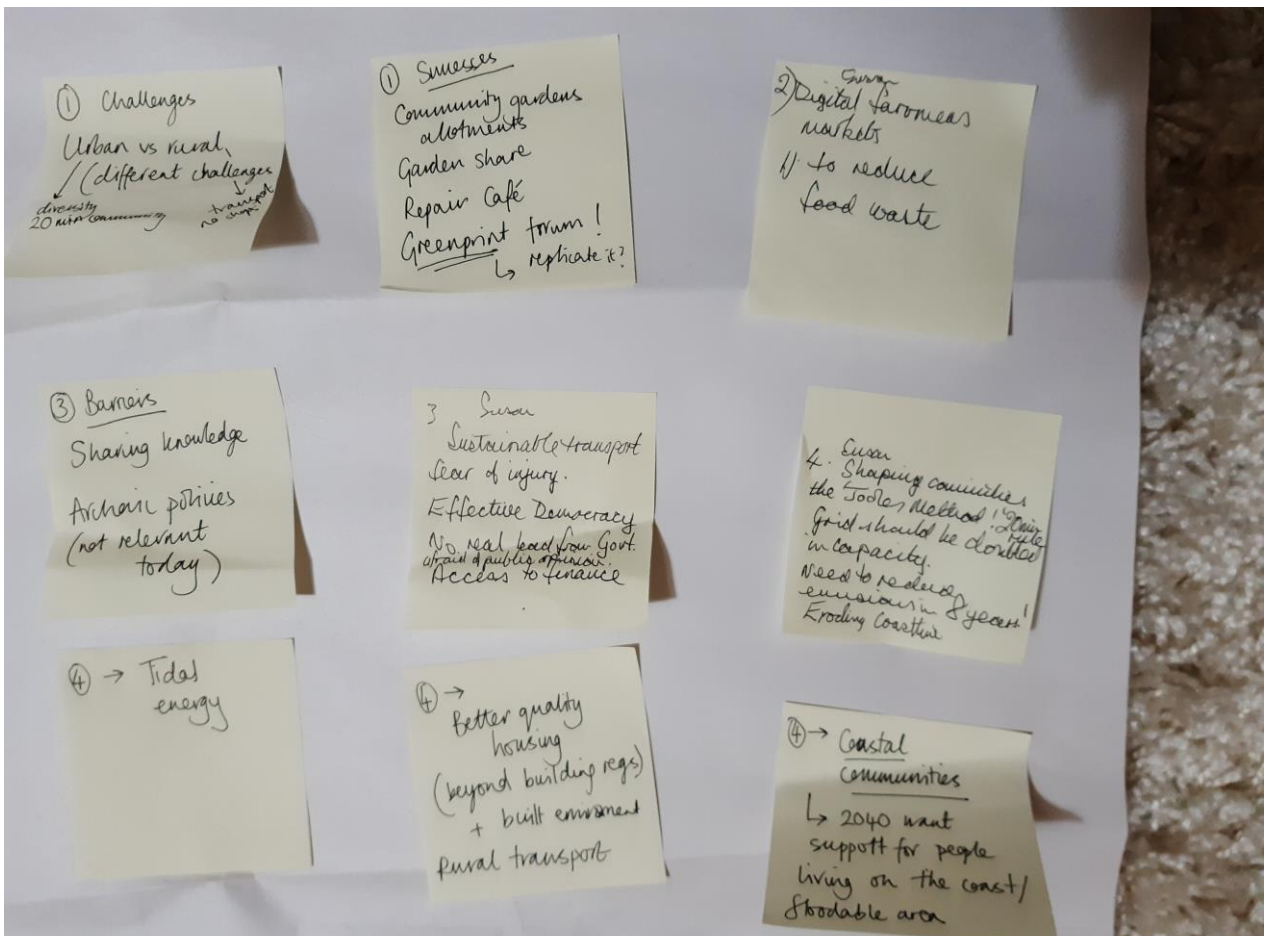 ① Challenges
Urban vs rural
(different challenges
diversity
20 min community
transport
no shops
① Successes
Community gardens
allotments
Garden share
Repair Café
Greenprint forum!
↳ replicate it?
Susan
2) Digital farmers
markets
1) to reduce
food waste
③ Barriers
Sharing knowledge
Archaic policies
(not relevant
today)
3 Susan
Sustainable transport
fear of injury.
Effective Democracy
No real lead from Govt.
afraid of public opinion.
Access to finance
Susan
4. Shaping communities
the Method! "20 min
rule
Grid should be doubled
in capacity.
Need to reduce
emissions in 8 years!
Eroding Coastline
④ → Tidal
energy
④ →
Better quality
housing
(beyond building regs)
+ built enviroment
Rural transport
④ → Coastal
Communities
↳ 2040 want
support for people
living on the coast/
floodable area